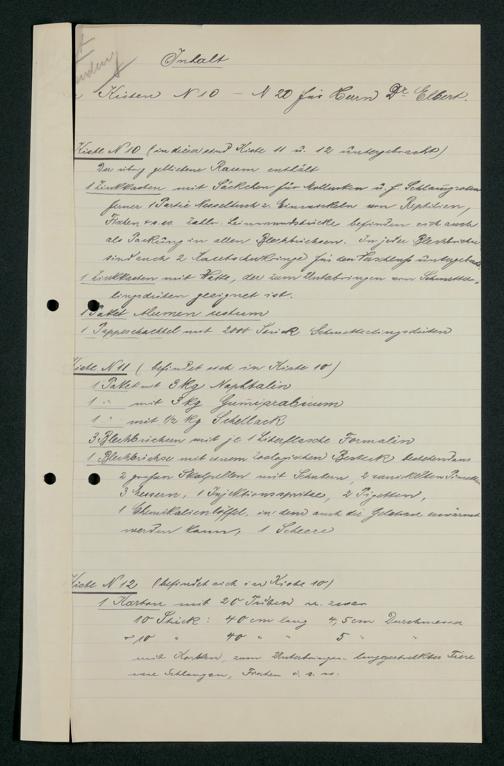 Inhalt
Kisten N 10 – N 20 für Herrn Dr Elbert.
Kiste N 10 (in dieser sind Kiste 11 u. 12 untergebracht)
Der übrig gebliebene Raum enthält
1 Zinkkasten mit Säckchen für Mollusken u. f.
ferner 1 Partie Nesseltuch z. Einwickeln von Reptilien,
Fischen Leinwandstücke befinden sich auch
als Packung in allen Blechbüchsen. In jeder Blechbüchse
sind auch 2 für den Verschluss
1 Zinkkasten mit Watte, der zum Unterbringen von Schmetter-
lingsdüten geeignet ist.
1 Paket Alumen ustum
1 Pappschachtel mit 2000 Stück Schmetterlingsdüten
Kiste N 11 (befindet sich in Kiste 10)
1 Paket mit 3 kg Naphtalin
1 " mit 3 kg
1 " mit ½ kg Schellack
3 Blechbüchsen mit je 1 Literflasche Formalin
1 Blechbüchse mit einem zoologischen Besteck bestehend aus
2 großen Skalpellen mit 2
3 Messern, 1 Injektionsspritze, 2 Pipetten,
1 Chemikalienlöffel, in dem auch die Gelatine erwärmt
werden kann, 1 Scheere
Kiste N 12 (befindet sich in Kiste 10)
1 Karton mit 20 Tuben u. zwar
10 Stück: 40 cm lang 4,5 cm Durchmesser
10 " 40 " " 5 " "
mit Korken, zum Unterbringen langgestreckter Tiere
wie Schlangen, Fischen u. s. w.